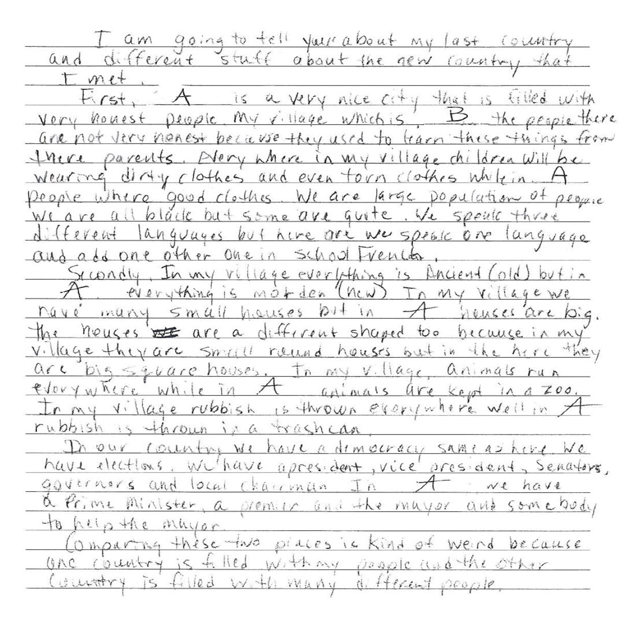 I am going to tell your about my last country
and different stuff about the new country that
I met.
First, A is a very nice city that is filled with
very honest people. My village which is, B the people there
are not very honest because they used to learn these things from
there parents. Every where in my village children will be
wearing dirty clothes and even torn clothes while in A
people where good clothes. We are large population of people
we are all black but some are quite. We speak three
different languages but here are we speak one language
and add one other one in school French.
Secondly, In my village everything is Ancient (old) but in
A everything is morden (new) In my village we
have many small houses but in A houses are big.
the houses are a different shaped too because in my
village they are small round houses but in the here they
are big square houses. In my village, animals run
everywhere while in A animals are kept in a zoo.
In my village rubbish is thrown everywhere well in A
rubbish is thrown in a trashcan.
In our country we have a democracy same as here. We
have elections. We have a president, vice president, Senators,
governors and local chairman In A we have
a Prime Minister, a premier and the mayor and somebody
to help the mayor.
Comparing these two places is kind of weird because
one country is filled with my people and the other
Country is filled with many different people.